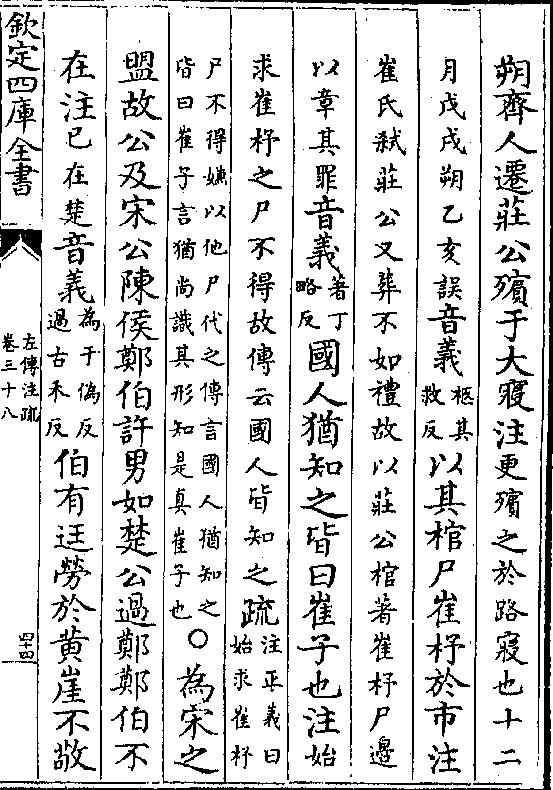 朔齊人遷莊公殯于大寢注更殯之於路寢也十二
月戊戌朔乙亥誤音義柩其救反以其棺尸崔杼於市注
崔氏弑莊公又葬不如禮故以莊公棺著崔杼尸邊
以章其罪音義著丁略反國人猶知之皆曰崔子也注始
求崔杼之尸不得故傳云國人皆知之疏注正義曰始求崔杼
尸不得嫌以他尸代之傳言國人猶知之
皆曰崔子言猶尚識其形知是真崔子也○為宋之
盟故公及宋公陳侯鄭伯許男如楚公過鄭鄭伯不
在注已在楚音義為于偽反過古禾反伯有迋勞於黄崖不敬
欽定四庫全書
左傳注疏
卷三十八
四十四